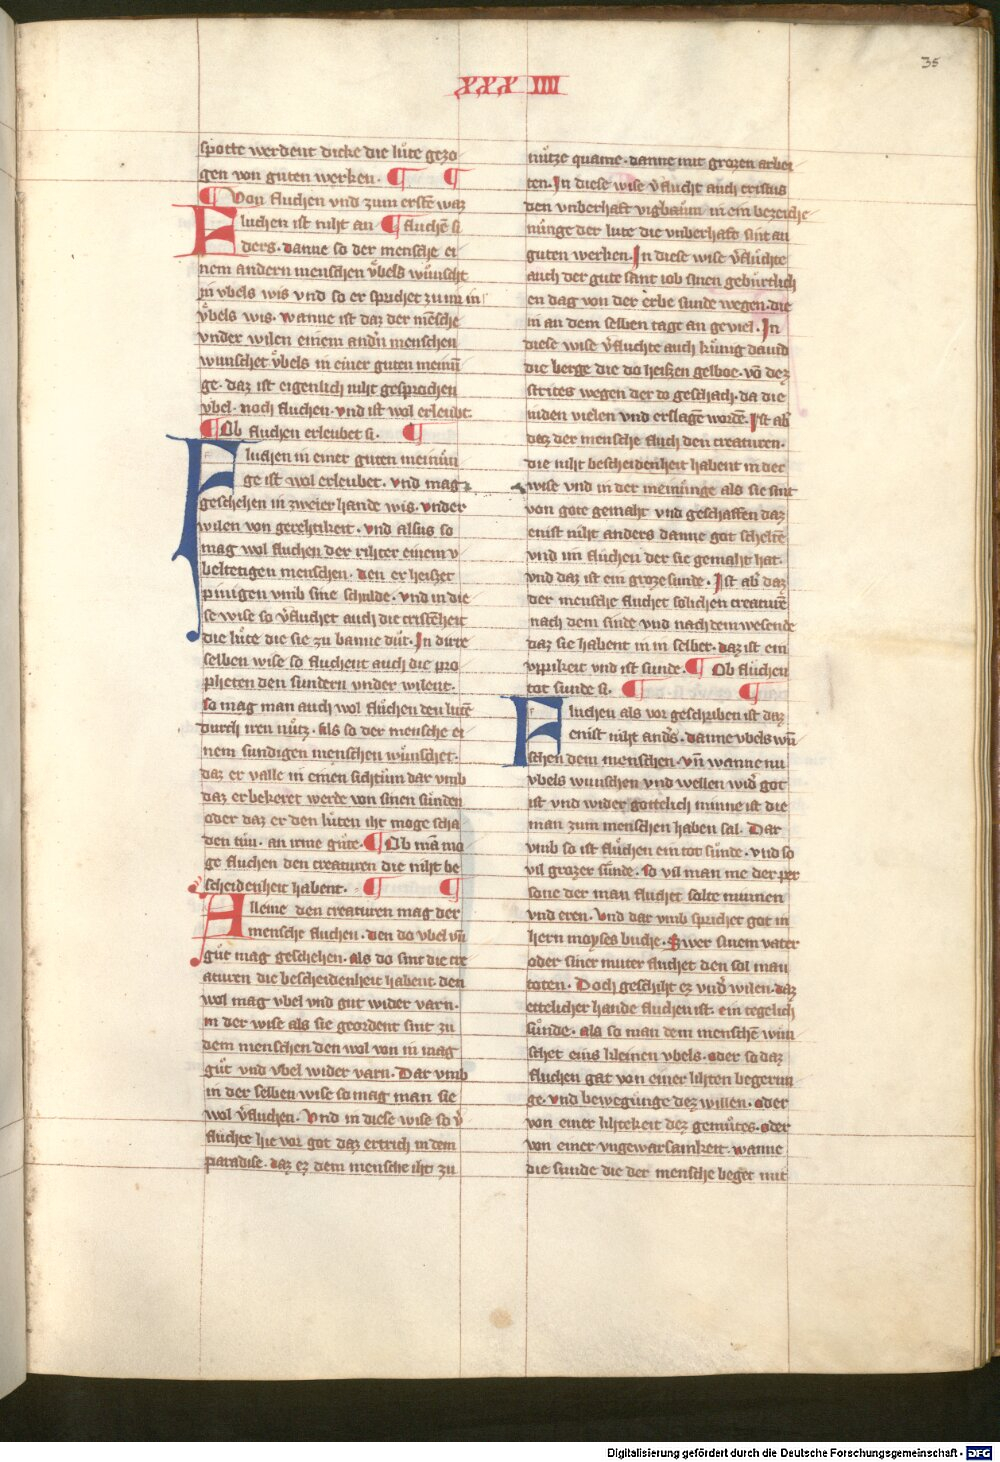 XXX IIII
35
spotte werdent dicke die lúte gezo
gen von guten werken. ¶ ¶
¶ Von fluchen vnd zum erstē waz
Fluchen ist niht an ¶ fluchē si
ders. danne so der mensche ei
nem andern menschen v̊bels wůnscht
in vbels wis vnd so er sprichet zu im in
v̊bels wis. wanne ist daz der mēsche
vnder wilen einem andn̄ menschen
wunschet v̊bels in einer guten meinū
ge. daz ist eigenlich niht gesprochen
v̊bel. noch fluchen. vnd ist wol erleubt.
¶ Ob fluchen erleubet si. ¶
Fluchen in einer guten meinůn
ge ist wol erleubet. vnd mag
geschehen in zweier hande wis. vnder
wilen von gerehtikeit. vnd alsus so
mag wol fluchen der rihter einem v
beltetigen menschen. den er heiszet
pinigen vmb sine schulde. vnd in die
se wise so v̄fluchet auch die cristēheit
die lůte die sie zu banne důt. In dirre
selben wise so fluchent auch die pro
pheten den sundern vnder wilent.
so mag man auch wol fluchen den lutē
durch iren nůtz. als so der mensche ei
nem sundigen menschen wůnschet.
daz er valle in einen sichtům dar vmb
daz er bekeret werde von sinen sůnden
oder daz er den lůten iht moge scha
den tůn. an irme gůte. ¶ Ob mā mo
ge fluchen den creaturen die niht be
scheidenheit habent. ¶ ¶
Alleine den creaturen mag der
mensche fluchen. den do vbel vn̄
gůt mag geschehen. als do sint die cre
aturen die bescheidenheit habent. den
wol mag vbel vnd gut wider varn.
in der wise als sie geordent sint zu
dem menschen den wol von in mag
gůt vnd vbel wider varn. Dar vmb
in der selben wise so mag man sie
wol v̄fluchen. Vnd in diese wise so v̄
fluchte hie vor got daz ertrich in dem
paradise. daz ez dem mensche iht zu
nůtze quame. danne mit grozen arbei
ten. In diese wise v̄flucht auch cristus
den vnberhaft vigbaům in ein bezeiche
nůnge der lute die vnberhaft sint an
guten werken. In diese wise v̄flůchte
auch der gute sant iob sinen gebůrtlich
en dag von der erbe sunde wegen. die
in an dem selben tage an geviel. In
diese wise v̄fluchte auch kůnig dauid
die berge die do heiszen gelboe. vō dez
strites wegen der do geschach. da die
inden vielen vnd erslagē wordē. Ist ab̄
daz der mensche fluch den creaturen.
die niht bescheidenheit habent in der
wise vnd in der meinůnge als sie sint
von gote gemaht vnd geschaffen daz
enist niht anders danne got scheltē
vnd im fluchen der sie gemaht hat.
vnd daz ist ein groze sunde. Ist ab̄ daz
der mensche fluchet solichen creaturē
nach dem sinde vnd nach dem wesende
daz sie habent in in selber. daz ist ein
vppikeit vnd ist sunde. ¶ Ob flůchen
tot sunde si. ¶ ¶
Fluchen als vor geschriben ist daz
enist niht and̄s. danne vbels wů
schen dem menschen. vn̄ wanne nu
vbels wunschen vnd wellen wid̄ got
ist vnd wider gottelich minne ist die
man zum menschen haben sal. Dar
vmb so ist flůchen ein tot sůnde. vnd so
vil grozer sůnde. so vil man me der per
sone der man fluchet solte minnen
vnd eren. Vnd dar vmb sprichet got in
hern moyses buche. Swer sinem vater
oder siner muter fluchet den sol man
toten. Doch geschiht ez vnd̄ wilen. daz
ettelicher hande fluchen ist. ein tegelich
sůnde. als so man dem menschē wün
schet eins kleinen vbels. oder so daz
fluchen gat von einer lihten begerun
ge. vnd bewegůnge dez willen. oder
von einer lihtekeit dez gemůtes. oder
von einer vngewarsamkeit. wanne
die sunde die der mensche beget mit
Digitalisierung gefördert durch die Deutsche Forschungsgemeinschaft - DFG